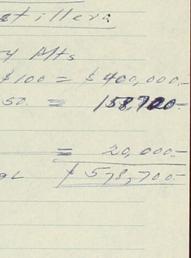 stillers
4 Mts
$100 = $400,000.-
50. = 158,700-
= 20,000.-
$578,700.-